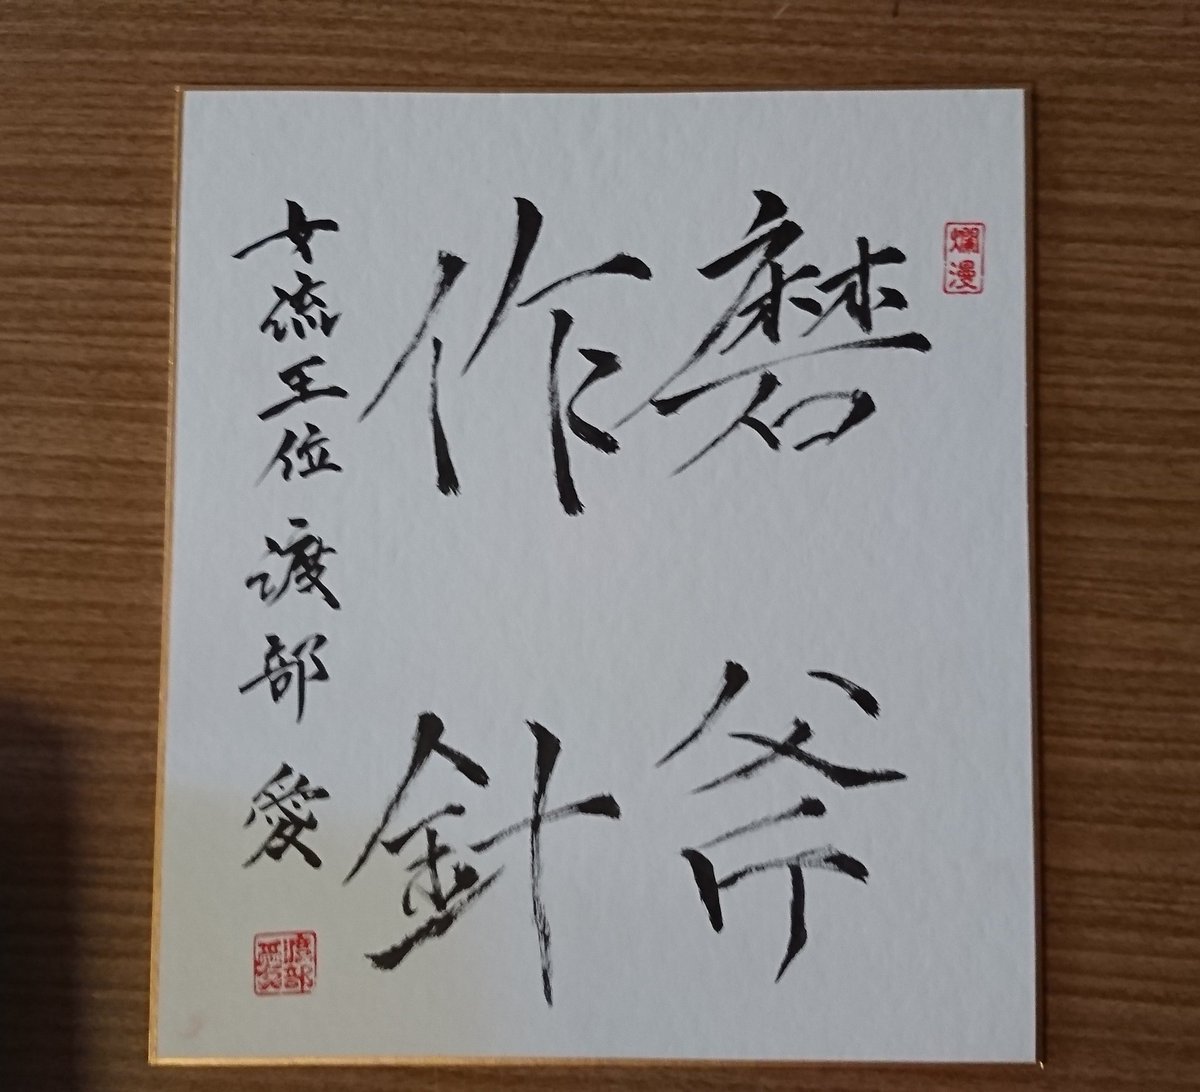 爛漫
磨斧
作針
女流王位 渡部 愛
渡部愛